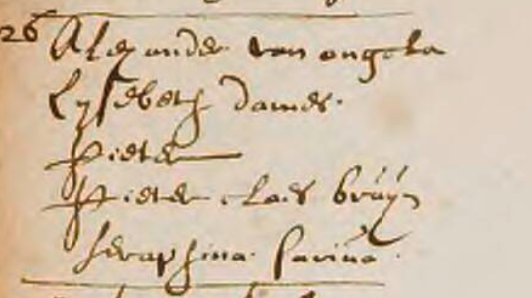 26 Alexander van ongela
Lysebeth dames.
Pieter
Pieter claes bruÿn
seraphina. favina.